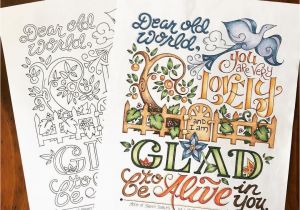 Dear old
world,
to
be
Dear old
world,
you
are very
lovely
and
I am
GLAD
to
be Alive in
you